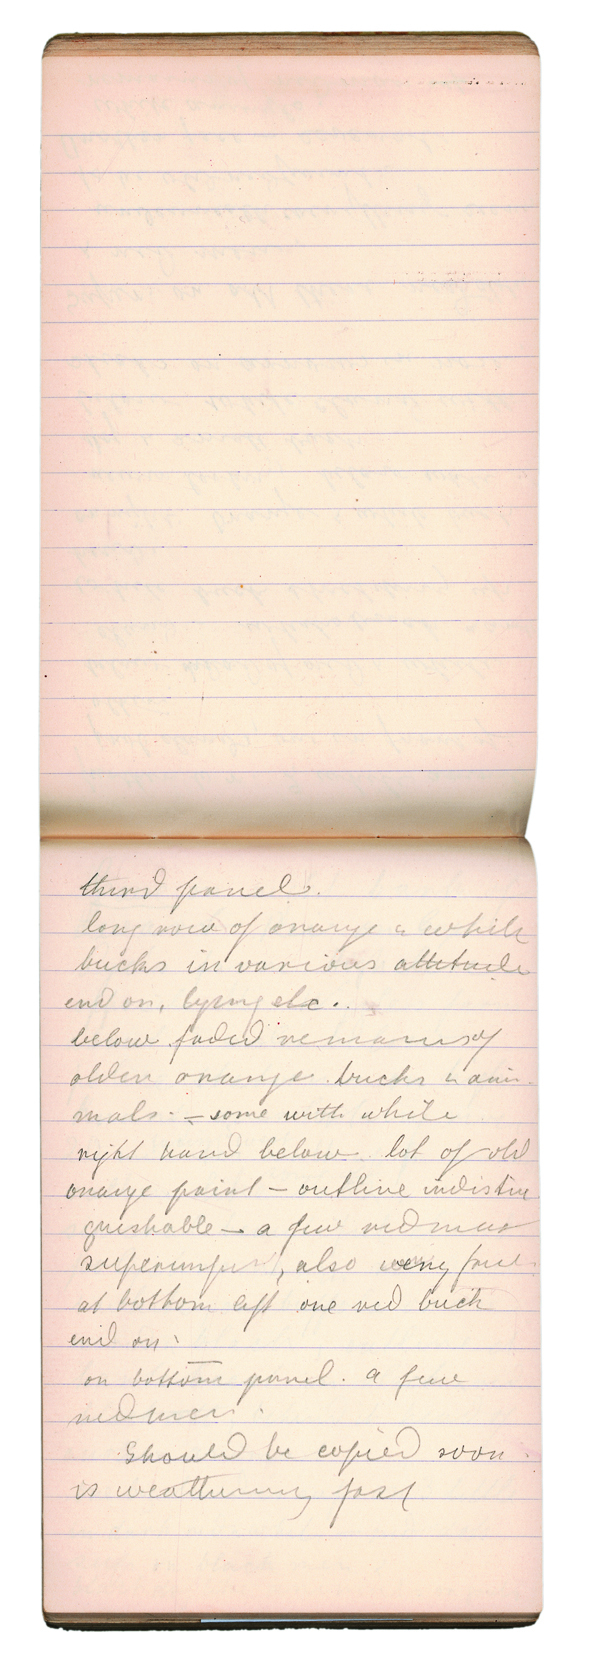 third panel.
long row of orange & white
bucks in various attitude
end on, lying etc.
below faded remains of
older orange bucks & ani-
mals - some with white
right hand below lot of old
orange paint - outline indistin
guishable - a few red men
superimposed, also very faded
at bottom left one red buck
end on.
on bottom panel. a few
red men.
Should be copied soon
is weathering fast